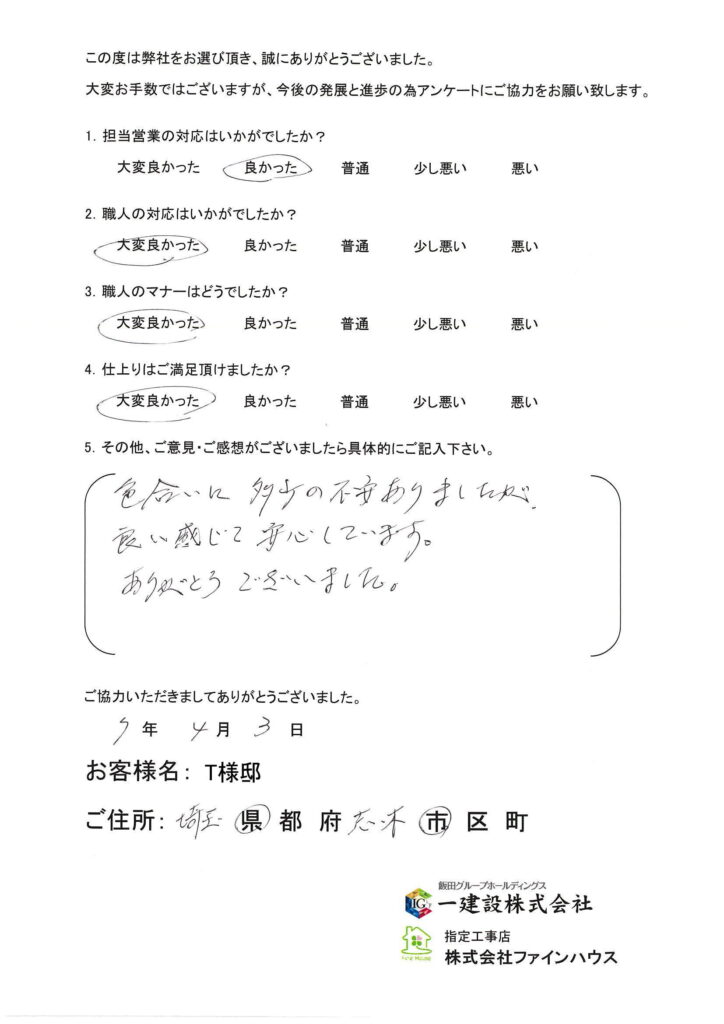 この度は弊社をお選び頂き、誠にありがとうございました。
大変お手数ではございますが、今後の発展と進歩の為アンケートにご協力をお願い致します。
1. 担当営業の対応はいかがでしたか？
大変良かった 良かった 普通 少し悪い 悪い
2. 職人の対応はいかがでしたか？
大変良かった 良かった 普通 少し悪い 悪い
3. 職人のマナーはどうでしたか？
大変良かった 良かった 普通 少し悪い 悪い
4. 仕上りはご満足頂けましたか？
大変良かった 良かった 普通 少し悪い 悪い
5. その他、ご意見・ご感想がございましたら具体的にご記入下さい。
色合いに 多少の不安ありましたが、
良い感じで 安心しています。
ありがとう ございました。
ご協力いただきましてありがとうございました。
7年 4月 3日
お客様名： T様邸
ご住所： 埼玉 県 都 府 志木 市 区 町
飯田グループホールディングス
IG 一建設株式会社
指定工事店
Fine House 株式会社ファインハウス